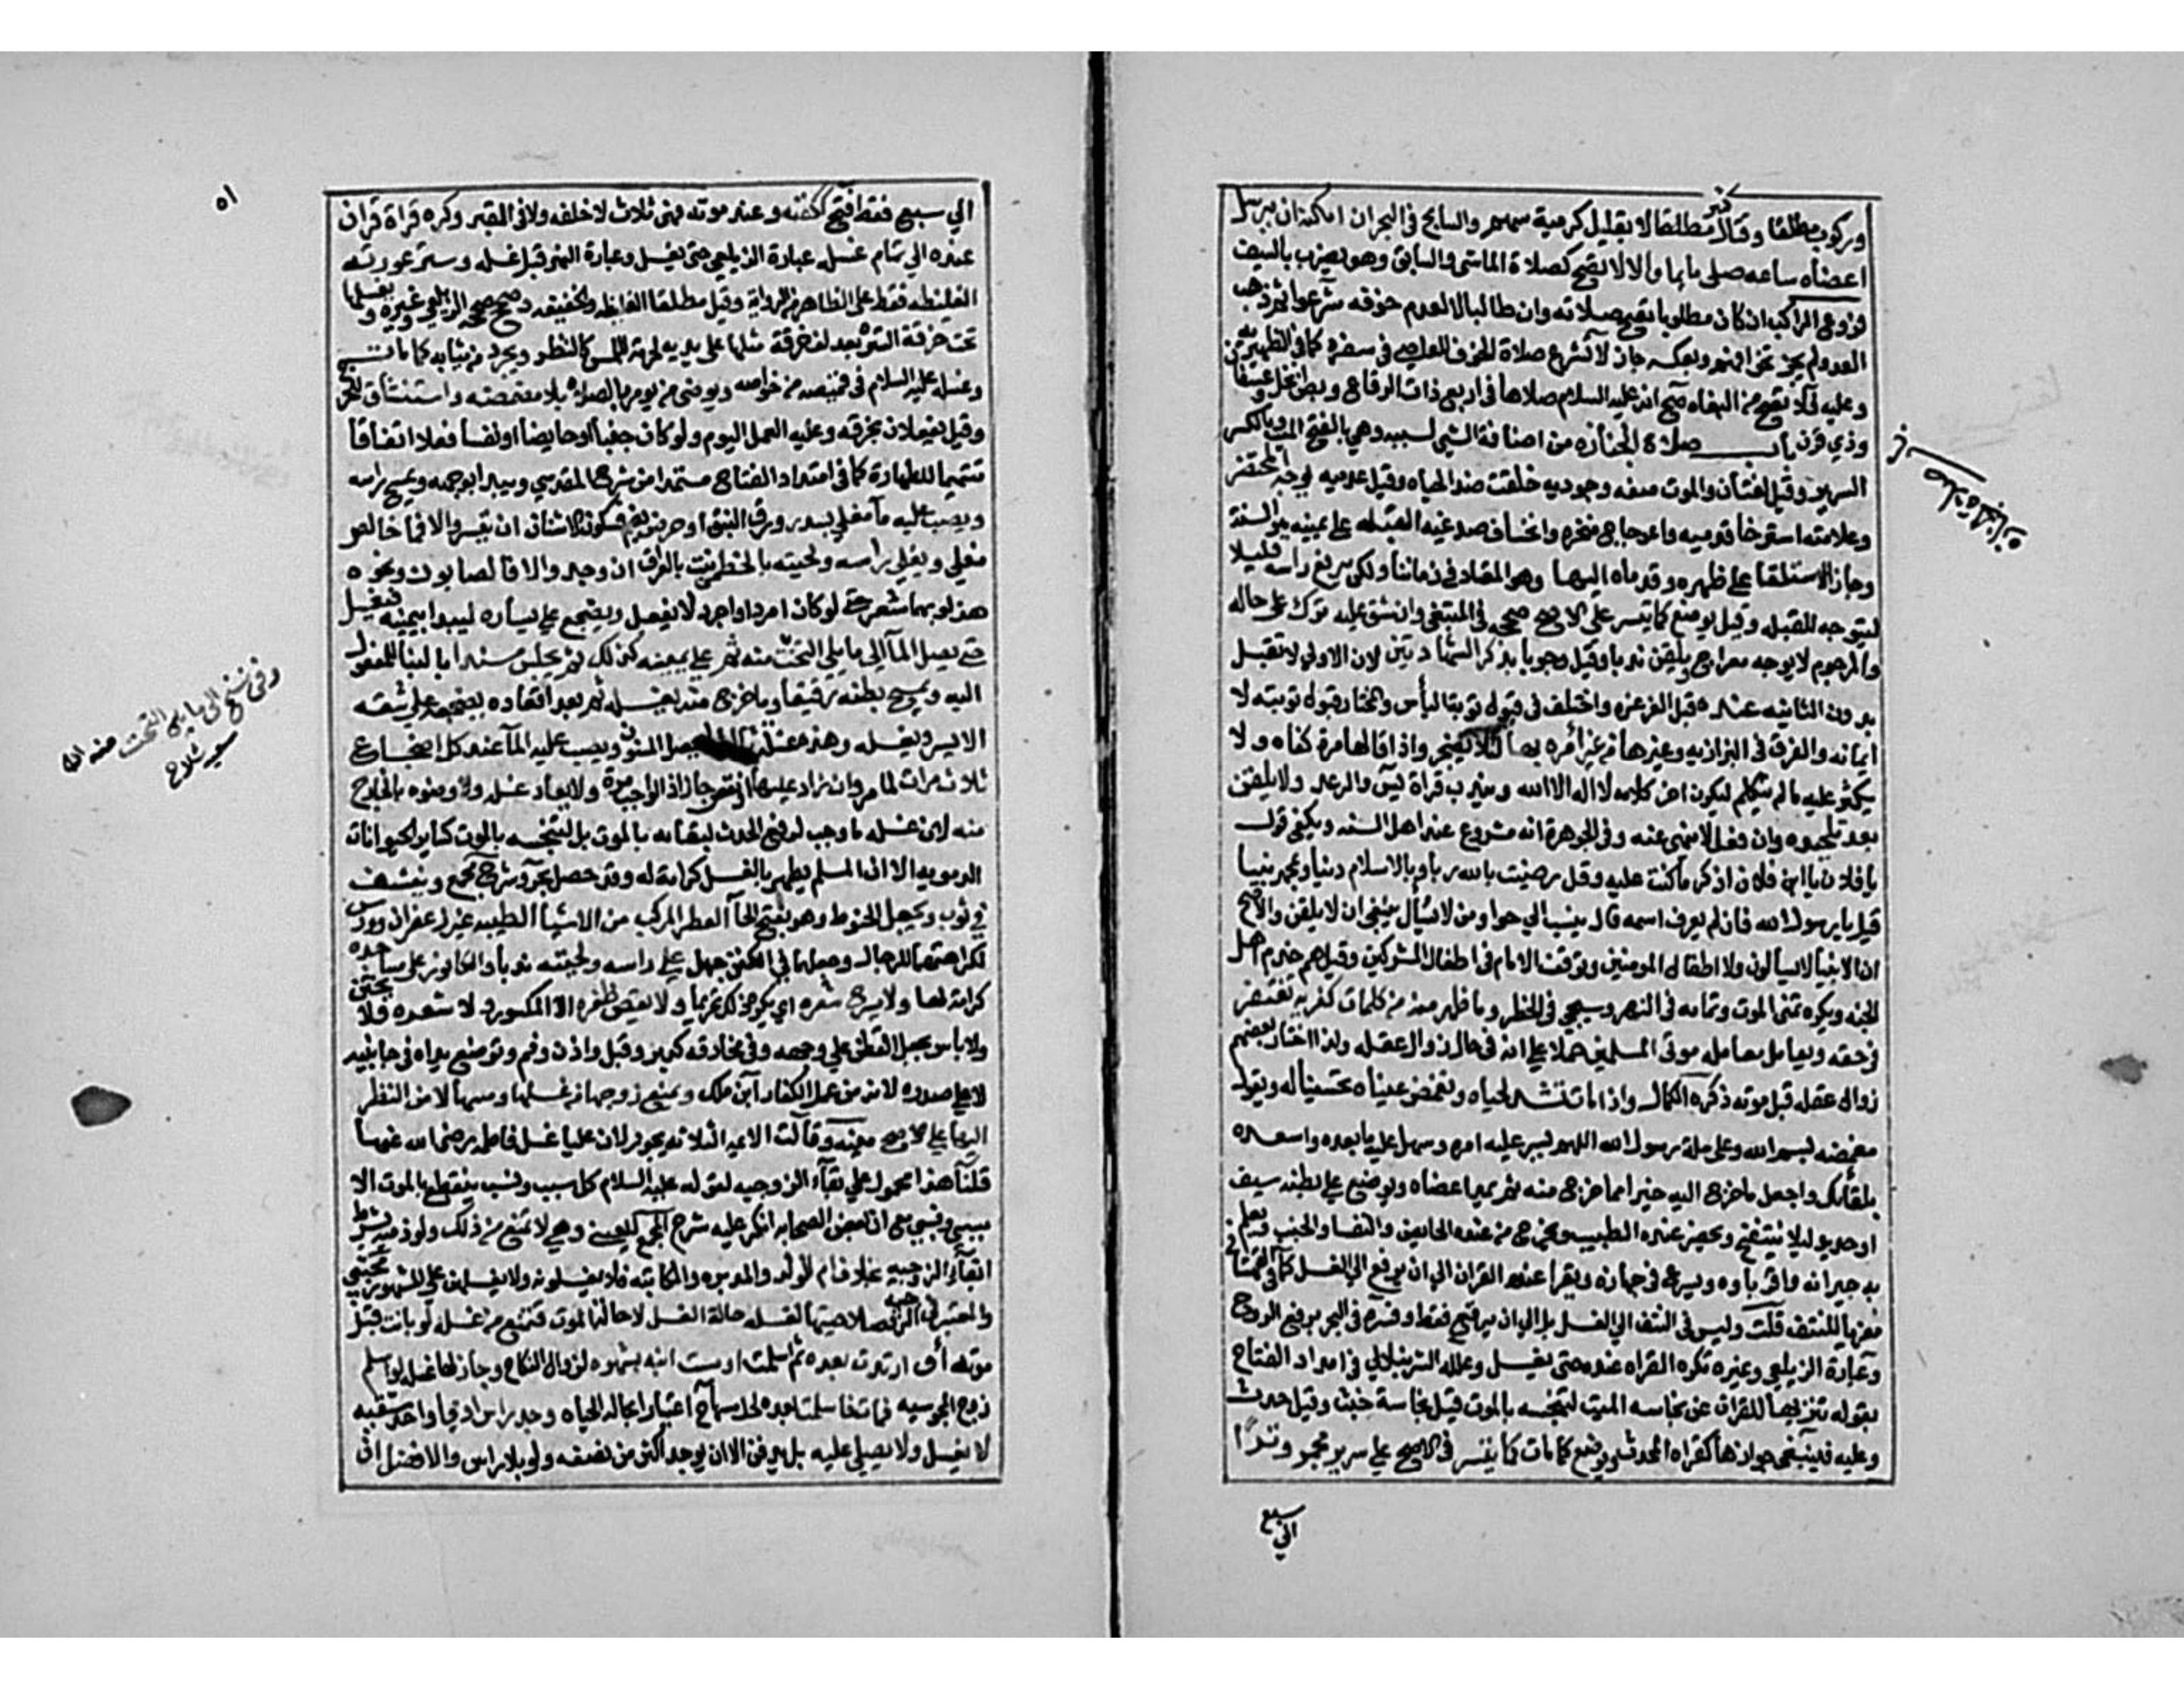 وركوب مطلقا وقتال كثير مطلقا لا بقليل كرمية سهم والسابح في البحر ان امكنه ان يرسل
اعضاه ساعه صلي بايما والا لا تصح كصلاة الماشي والسابق وهو يضرب بالسيف
فروع الراكب ان كان مطلوبا تصح صلاته وان طالبا لا لعدم خوفه شرعوا ثم ذهب
العدو لم يجز انحرافهم وبعكسه جاز لا تشرع صلاة الخوف للعاصي في سفره كما في الظهيريه
وعليه فلا تصح من البغاه صح انه عليه السلام صلاها في اربع ذات الرقاع وبطن نخل وعسفان
وذي قرد باب صلاة الجنازه من اضافة الشي لسببه وهي بالفتح الميت وبالكسر
السرير وقيل لغتان والموت صفه وجوديه خلقت ضد الحياه وقيل عدميه يوجه المحتضر
وعلامته استرخا قدميه واعوجاج منخره وانخساف صدغيه القبله علي يمينه هو السنة
وجاز الاستلقا علي ظهره وقدماه اليها وهو المعتاد في زماننا ولكن يرفع راسه قليلا
ليتوجه للقبله وقيل يوضع كما تيسر علي الاصح صححه في المبتغي وان شق عليه ترك علي حاله
والمرجوم لا يوجه معراج ويلقن ندبا وقيل وجوبا بذكر الشهادتين لان الاولي لا تقبل
بدون الثانيه عنده قبل الغرغره واختلف في قبول توبة اليأس والمختار قبول توبته لا
ايمانه والفرق في البزازيه وغيرها من غير امره بها لئلا يضجر واذا قالها مرة كفاه ولا
يكثر عليه ما لم يتكلم ليكون اخر كلامه لا اله الا الله ويندب قراة يس والرعد ولا يلقن
بعد تلحيده وان فعل لا ينهي عنه وفي الجوهرة انه مشروع عند اهل السنه ويكفي قول
يا فلان يا ابن فلان اذكر ما كنت عليه وقل رضيت بالله ربا وبالاسلام دينا وبمحمد نبيا
قيل يا رسول الله فان لم يعرف اسمه قال ينسب الي حوا ومن لا يسأل ينبغي ان لا يلقن والاصح
ان الانبيا لا يسألون ولا اطفال المومنين وتوقف الامام في اطفال المشركين وقيل هم خدم اهل
الجنه ويكره تمني الموت وتمامه في النهر وسيجي في الحظر وما ظهر منه من كلمات كفريه تغتفر
في حقه ويعامل معاملة موتي المسلمين حملا علي انه في حال زوال عقله ولذا اختار بعضهم
زوال عقله قبل موته ذكره الكمال واذا مات تشد لحياه وتغمض عيناه تحسينا له ويقول
مغمضه بسم الله وعلي ملة رسول الله اللهم يسر عليه امره وسهل عليه ما بعده واسعده
بلقائك واجعل ما خرج اليه خيرا مما خرج منه ثم تمد اعضاه ويوضع علي بطنه سيف
او حديد ليلا ينتفخ ويحضر عنده الطيب ويخرج من عنده الحايض والنفسا والجنب ويعلم
به جيرانه واقرباوه ويسرع في جهازه ويقرا عنده القران الي ان يرفع الي الغسل كما في القهستاني
معزيا للنتف قلت وليس في النتف الي الغسل بل الي ان يرفع فقط وفسره في البحر برفع الروح
وعبارة الزيلعي وغيره تكره القراه عنده حتي يغسل وعلله الشرنبلالي في امداد الفتاح
بقوله تنزيها للقران عن نجاسه الميت لتنجسه بالموت قيل نجاسة خبث وقيل حدث
وعليه فينبغي جوازها كقراه المحدث ويوضع كما مات كما تيسر في الاصح علي سرير مجمر وترا
الي سبع
باب صلاة الجنازه
٥١
الي سبع فقط فتح ككفنه وعند موته فهي ثلاث لا خلفه ولا في القبر وكره قراة قران
عنده الي تمام غسله عبارة الزيلعي حتي يغسل وعبارة النهر قبل غسله وستر عورته
الغليظه فقط علي الظاهر من الرواية وقيل مطلقا الغليظه والخفيفه وصحح صححه الزيلعي وغيره ويغسلها
تحت خرقة السترة بعد لف خرقة مثلها علي يديه لحرمة اللمس كالنظر ويجرد من ثيابه كما مات
وغسله عليه السلام في قميصه من خواصه ويوضي من يومر بالصلاه بلا مضمضه واستنشاق للحرج
وقيل يفعلان بخرقه وعليه العمل اليوم ولو كان جنبا او حايضا او نفسا فعلا اتفاقا
تتميما للطهارة كما في امداد الفتاح مستمدا من شرح المقدسي ويبدا بوجهه ويمسح راسه
ويصب عليه مآ مغلي بسدر ورق النبق او حرض بضم فسكون الاشنان ان تيسر والا فما خالص
مغلي ويغسل راسه ولحيته بالخطمي نبت بالعراق ان وجد والا فالصابون ونحوه
هذا لو بهما شعر حتي لو كان امرد او اجرد لا يفعل ويضجع علي يساره ليبدا بيمينه فيغسل
حتي يصل المآ الي ما يلي التخت منه ثم علي يمينه كذلك ثم يجلس مسندا بالبنا للمفعول
اليه ويمسح بطنه رقيقا وما خرج منه يغسله ثم بعد اقعاده يضجعه علي شقه
الايسر ويغسله وهذه غسلة ثالثة ليحصل المسنون ويصب عليه المآ عند كل اضجاع
ثلاث مرات لما مر وان زاد عليها او نقص جاز اذ الواجب مرة ولا يعاد غسله ولا وضوه بالخارج
منه لان غسله ما وجب لرفع الحدث لبقائه بالموت بل لتنجسه بالموت كساير الحيوانات
الدمويه الا ان المسلم يطهر بالغسل كرامة له وقد حصل بحر وشرح مجمع وينشف
في ثوب ويجعل الحنوط وهو بفتح الحآ العطر المركب من الاشيآ الطيبه غير زعفران وورس
لكراهتهما للرجال وجعلهما في الكفن جهل علي راسه ولحيته ندبا والكافور علي مساجده
كرامة لها ولا يسرح شعره اي يكره ذلك تحريما ولا يقص ظفره الا المكسور ولا شعره ولا يختن
ولا باس بجعل القطن علي وجهه وفي مخارقه كدبر وقبل واذن وفم وتوضع يداه في جانبيه
لا علي صدره لانه من عمل الكفار ابن ملك ويمنع زوجها من غسلها ومسها لا من النظر
اليها علي الاصح منيه وقالت الايمه الثلاثه يجوز لان عليا غسل فاطمه رضي الله عنهما
قلنا هذا محمول علي بقآء الزوجيه لقوله عليه السلام كل سبب ونسب ينقطع بالموت الا
سببي ونسبي مع ان بعض الصحابه انكر عليه شرح المجمع للعيني وهي لا تمنع من ذلك ولو ذميه بشرط
بقآء الزوجيه بخلاف ام الولد والمدبره والمكاتبه فلا يغسلونه ولا يغسلهن علي المشهور مجتبي
والمعتبر في الزوجيه صلاحيتها لغسله حالة الغسل لا حالة الموت فتمنع من غسله لو بانت قبل
موته أو ارتدت بعده ثم اسلمت او مست ابنه بشهوه لزوال النكاح وجاز لها غسله لو اسلم
زوج المجوسيه فمات فاسلمت بعده لحل مسها ح اعتبارا بحالة الحياه وجد راس ادمي او احد شقيه
لا يغسل ولا يصلي عليه بل يدفن الا ان يوجد اكثر من نصفه ولو بلا راس والافضل ان
وفي نسخ الي ما يلي التحت منه الخ